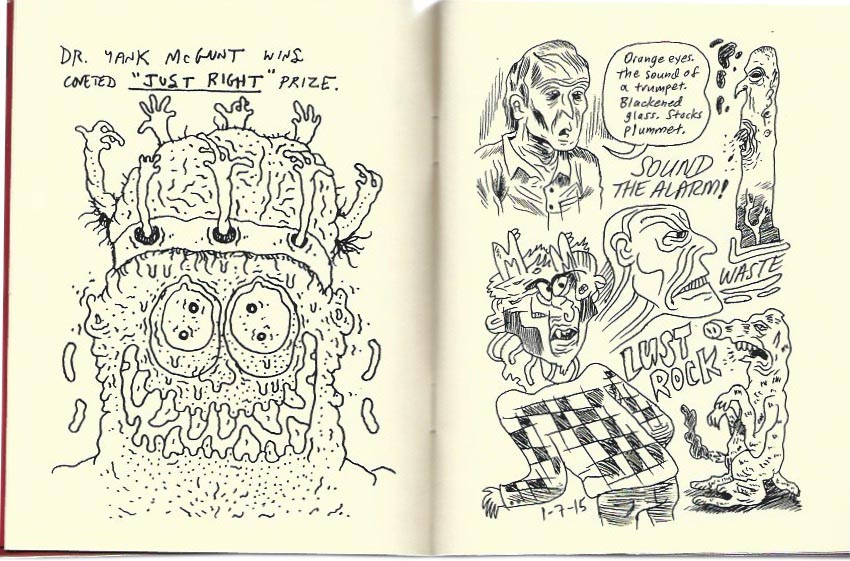 DR. YANK McGUNT WINS
COVETED "JUST RIGHT" PRIZE.
Orange eyes.
The sound of
a trumpet.
Blackened
glass. Stocks
plummet.
SOUND
THE ALARM!
WASTE
LUST
ROCK
1-7-15